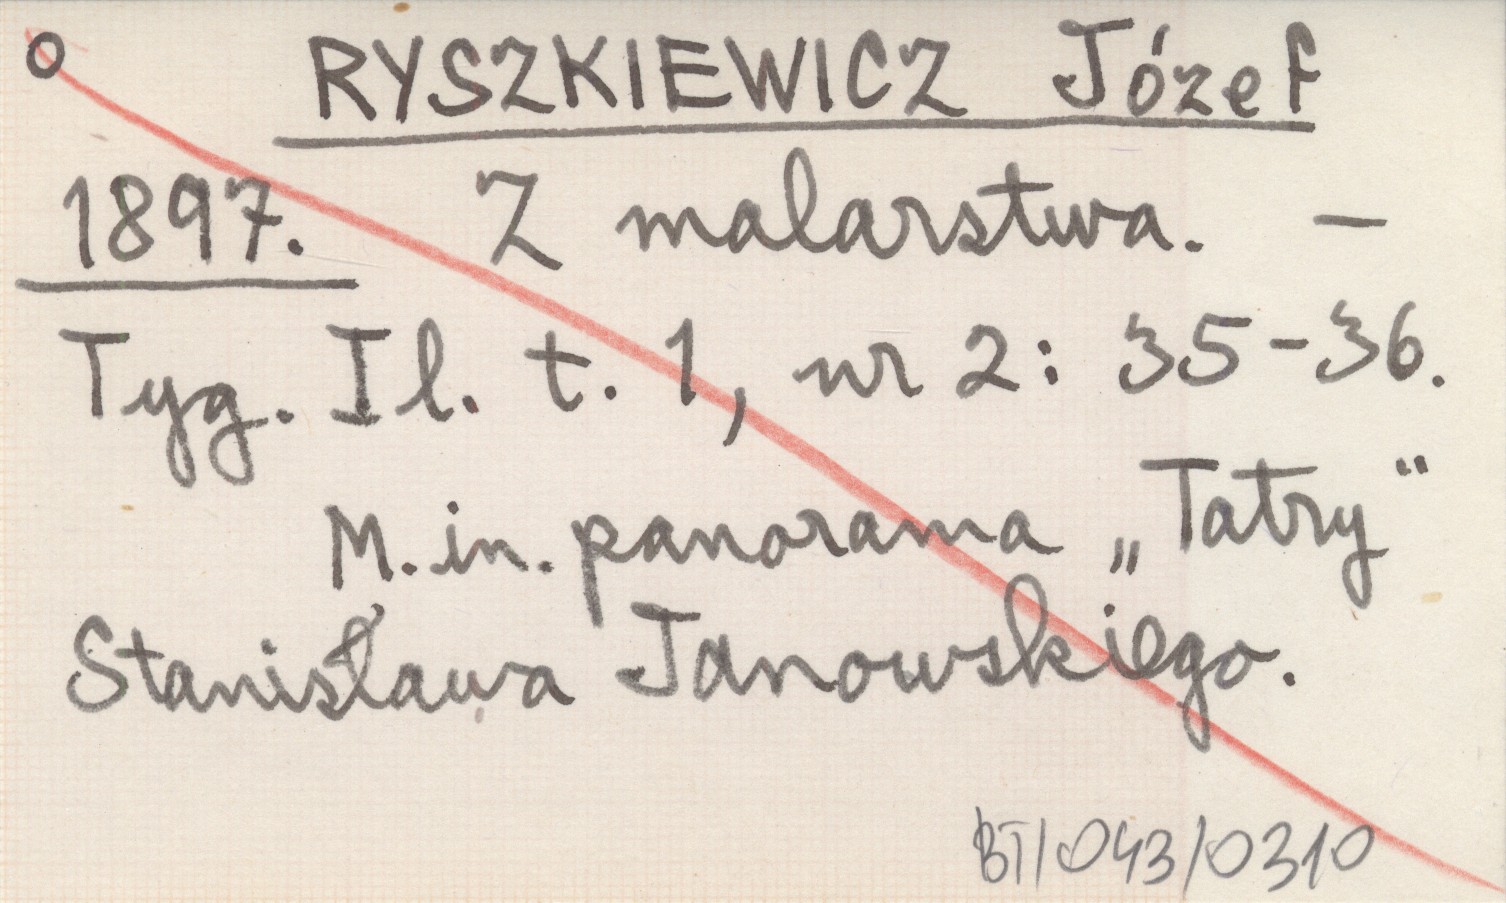 O RYSZKIEWICZ Józef
1897. Z malarstwa. —
Tyg. Il. t. 1, nr 2: 35-36.
M. in. panorama „Tatry"
Stanisława Janowskiego.
BT/043/0310